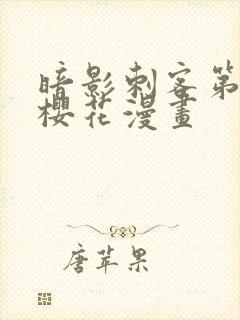 暗影刺客第
櫻花漫畫
唐苹果